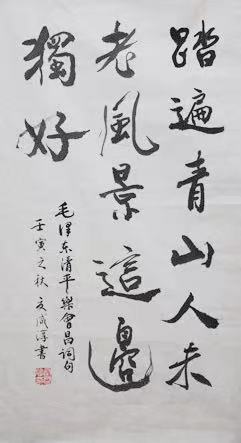 踏遍青山人未
老風景這邊
獨好
毛澤东清平樂會昌詞句
壬寅之秋